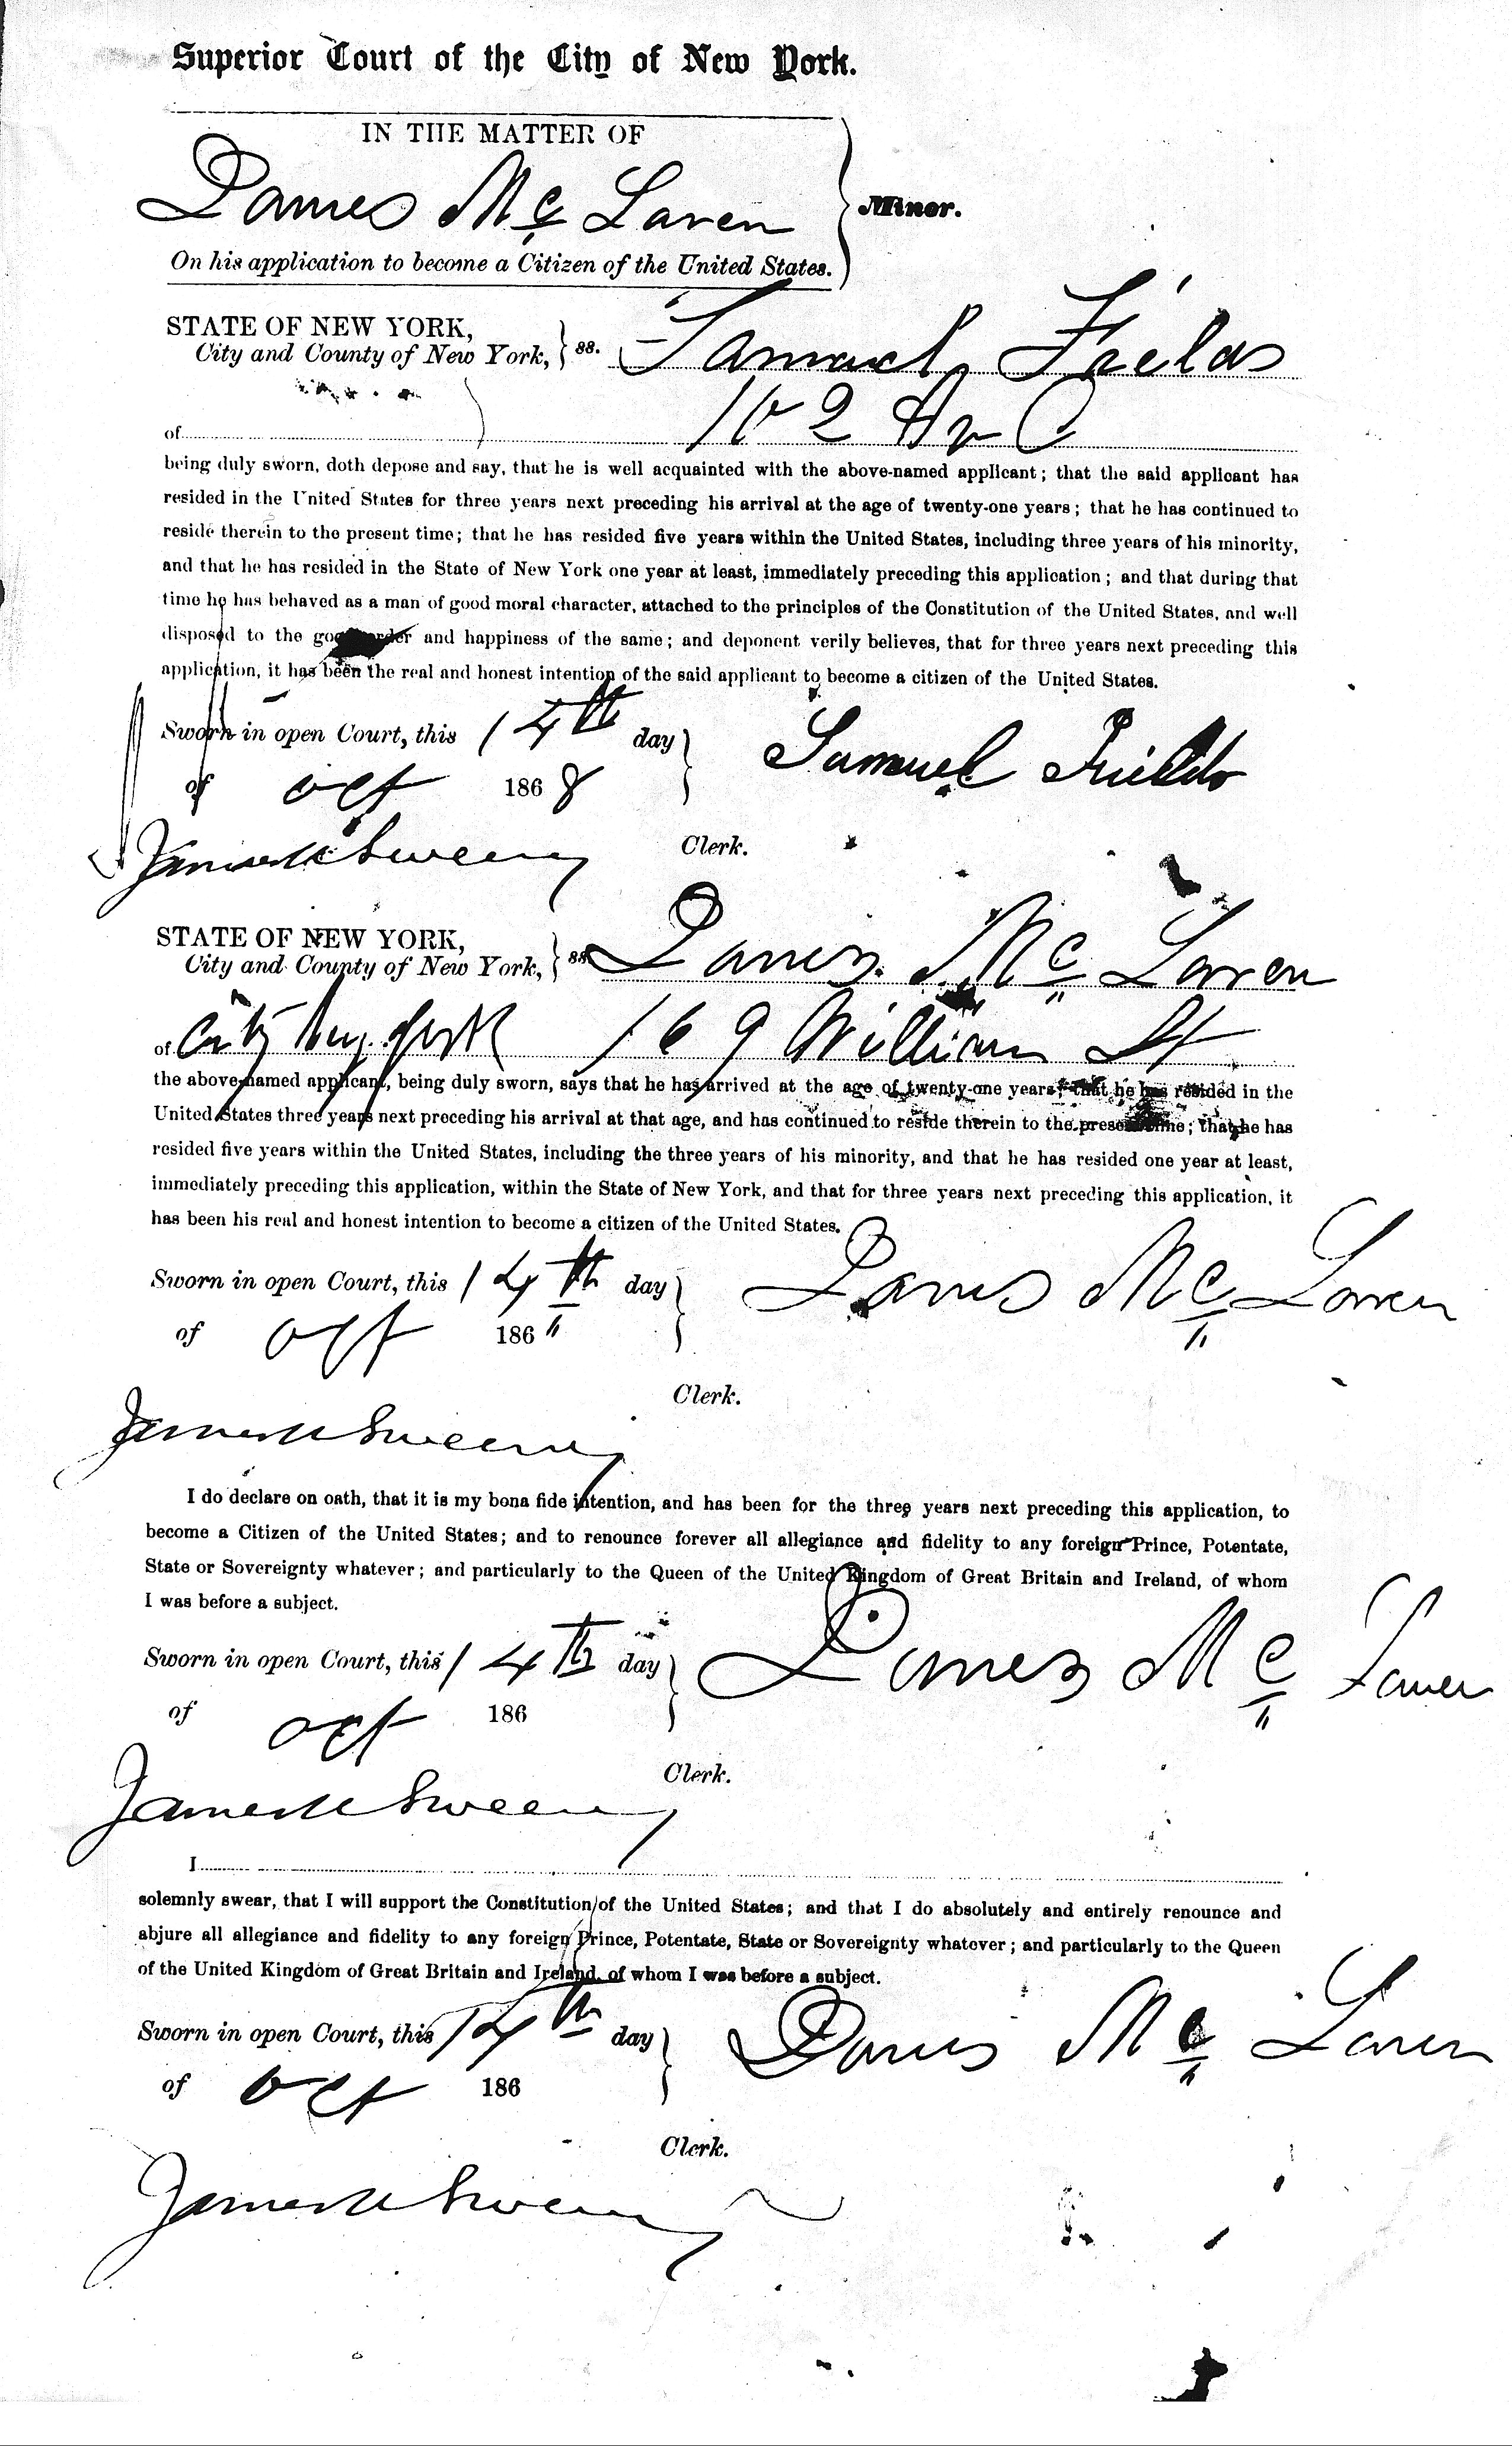 Superior Court of the City of New York.
IN THE MATTER OF
James Mc Laren
Minor.
On his application to become a Citizen of the United States.
STATE OF NEW YORK,
City and County of New York, ss. Samuel Fields
of 102 Av C
being duly sworn, doth depose and say, that he is well acquainted with the above-named applicant; that the said applicant has
resided in the United States for three years next preceding his arrival at the age of twenty-one years; that he has continued to
reside therein to the present time; that he has resided five years within the United States, including three years of his minority,
and that he has resided in the State of New York one year at least, immediately preceding this application; and that during that
time he has behaved as a man of good moral character, attached to the principles of the Constitution of the United States, and well
disposed to the good order and happiness of the same; and deponent verily believes, that for three years next preceding this
application, it has been the real and honest intention of the said applicant to become a citizen of the United States.
Sworn in open Court, this 14th day
of Oct 1868
Samuel Fields
James M Sweeny Clerk.
STATE OF NEW YORK,
City and County of New York, ss. James Mc Laren
of City New York 169 William St
the above-named applicant, being duly sworn, says that he has arrived at the age of twenty-one years; that he has resided in the
United States three years next preceding his arrival at that age, and has continued to reside therein to the present time; that he has
resided five years within the United States, including the three years of his minority, and that he has resided one year at least,
immediately preceding this application, within the State of New York, and that for three years next preceding this application, it
has been his real and honest intention to become a citizen of the United States.
Sworn in open Court, this 14th day
of Oct 186 "
James Mc Laren
Clerk.
James M Sweeny
I do declare on oath, that it is my bona fide intention, and has been for the three years next preceding this application, to
become a Citizen of the United States; and to renounce forever all allegiance and fidelity to any foreign Prince, Potentate,
State or Sovereignty whatever; and particularly to the Queen of the United Kingdom of Great Britain and Ireland, of whom
I was before a subject.
Sworn in open Court, this 14th day
of Oct 186
James Mc Laren
Clerk.
James M Sweeny
I
solemnly swear, that I will support the Constitution of the United States; and that I do absolutely and entirely renounce and
abjure all allegiance and fidelity to any foreign Prince, Potentate, State or Sovereignty whatever; and particularly to the Queen
of the United Kingdom of Great Britain and Ireland, of whom I was before a subject.
Sworn in open Court, this 14th day
of Oct 186
James Mc Laren
Clerk.
James M Sweeny